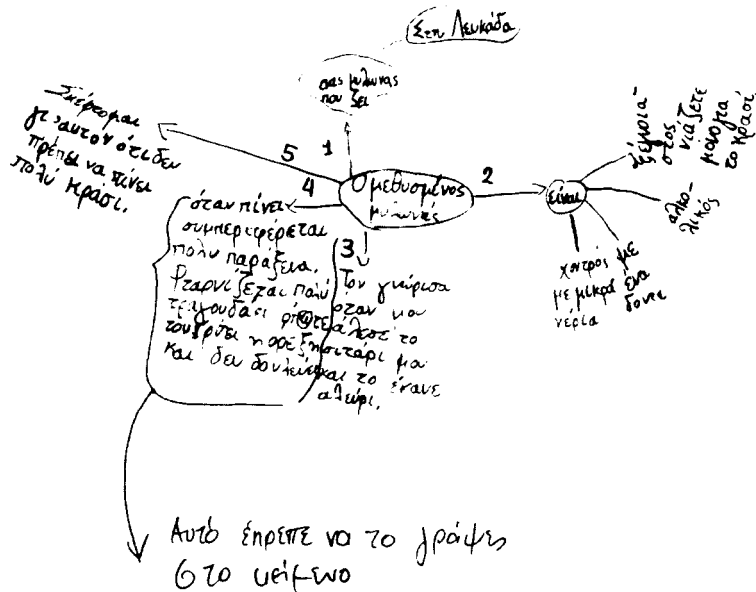 Στη Λευκάδα
σας μυλωνας
που ζει
1
Ο μεθυσμένος
μυλωνάς
2
είναι
νιάζετε
μόνο για
το κρασί.
αλκο-
λικός
χοντρός
με μικρά
χέρια
με
ένα
δοντι
3
Τον γνώρισα
όταν μου
άλεσε το
σιτάρι μου
και το έκανε
αλεύρι.
4
όταν πίνει
συμπεριφέρεται
πολυ παράξενα.
Φταρνίζεται πολύ
τραγουδάει
του
και δεν δουλεύει
5
Σκέφτομαι
γι'αυτον ότι δεν
πρέπει να πίνει
πολύ κράσι.
Αυτό έπρεπε να το γράψεις
στο κείμενο